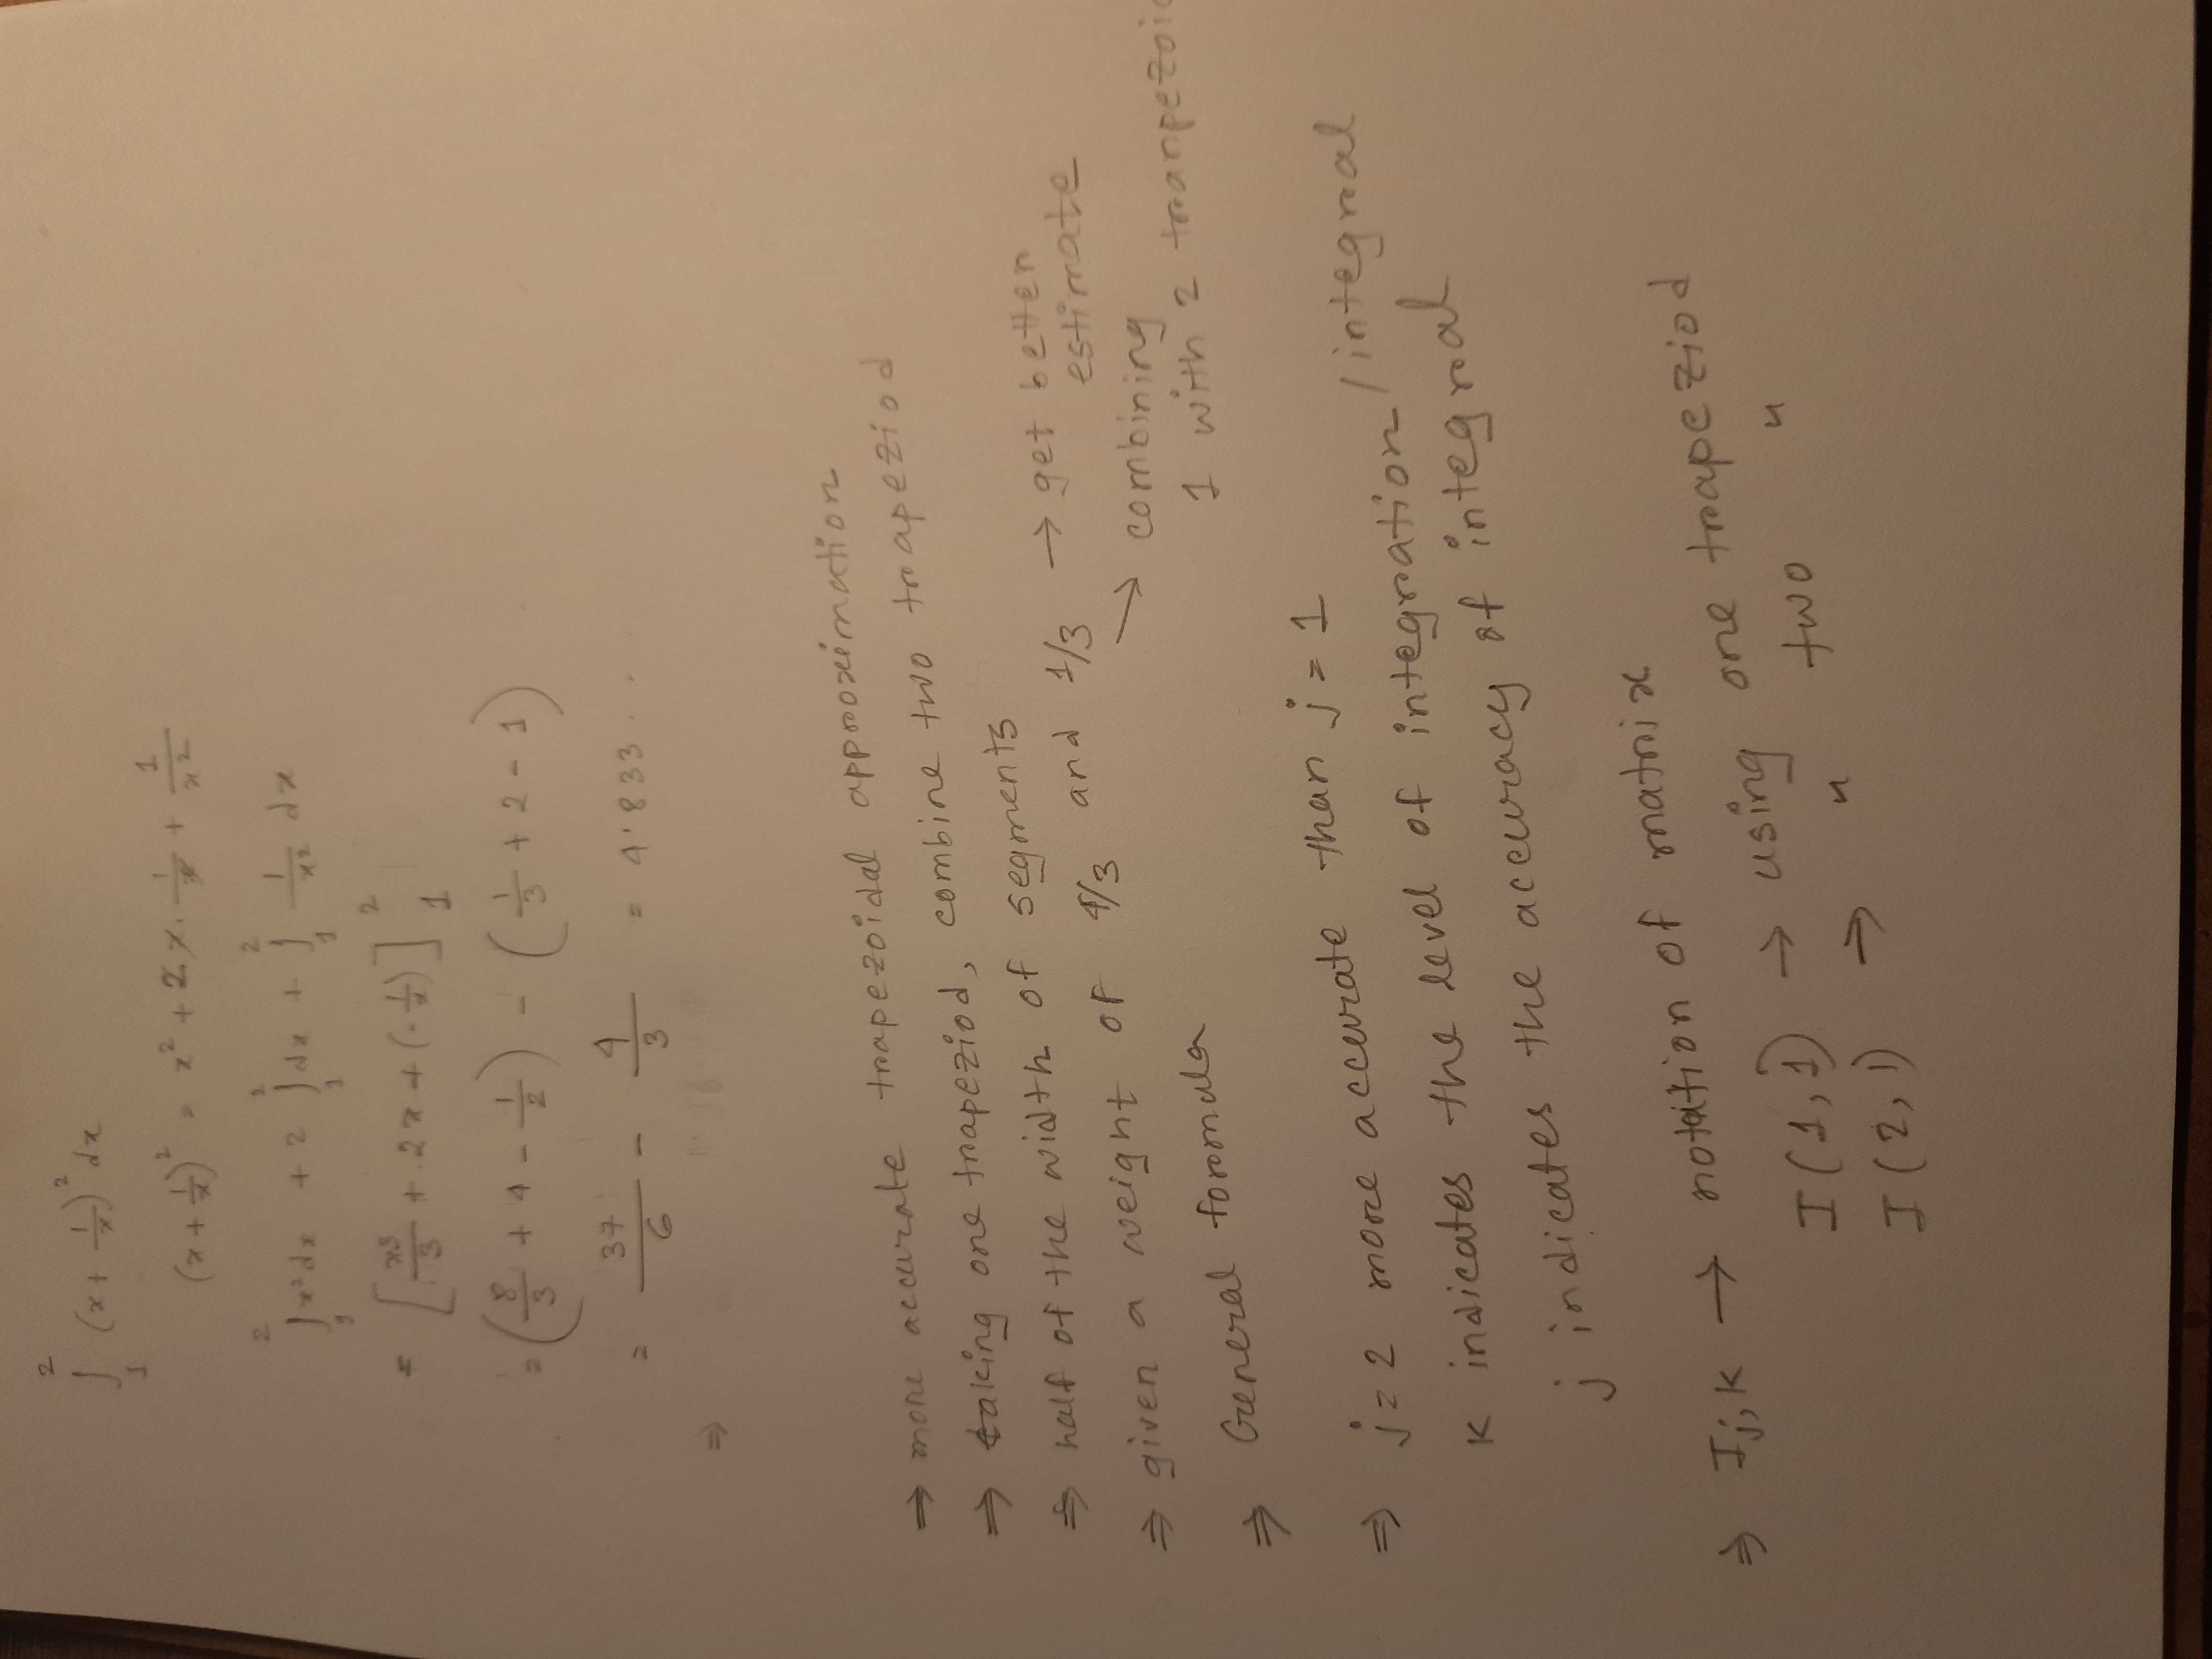 ∫₁² (x + 1/x)² dx
(x + 1/x)² = x² + 2x · 1/x + 1/x²
∫₁² x² dx + 2 ∫₁² dx + ∫₁² 1/x² dx
= [x³/3 + 2x + (-1/x)]₁²
= (8/3 + 4 - 1/2) - (1/3 + 2 - 1)
= 37/6 - 4/3 = 4.833...
⇒
⇒ more accurate trapezoidal approximation
⇒ taking one trapeziod, combine two trapeziod
⇒ half of the width of segments
⇒ given a weight of 4/3 and 1/3 → get better
estimate
↘ combining
1 with 2 tranpezoi
⇒ General formula
⇒ j = 2 more accurate than j = 1
K indicates the level of integration / integral
j indicates the accuracy of integral
⇒ Ij,K → notation of matrix
I(1,1) → using one trapeziod
I(2,1) → " two "